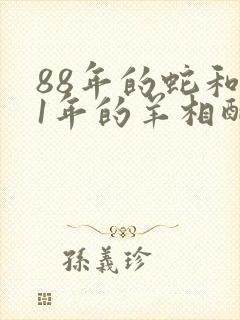 88年的蛇和
1年的羊相配
孫義珍